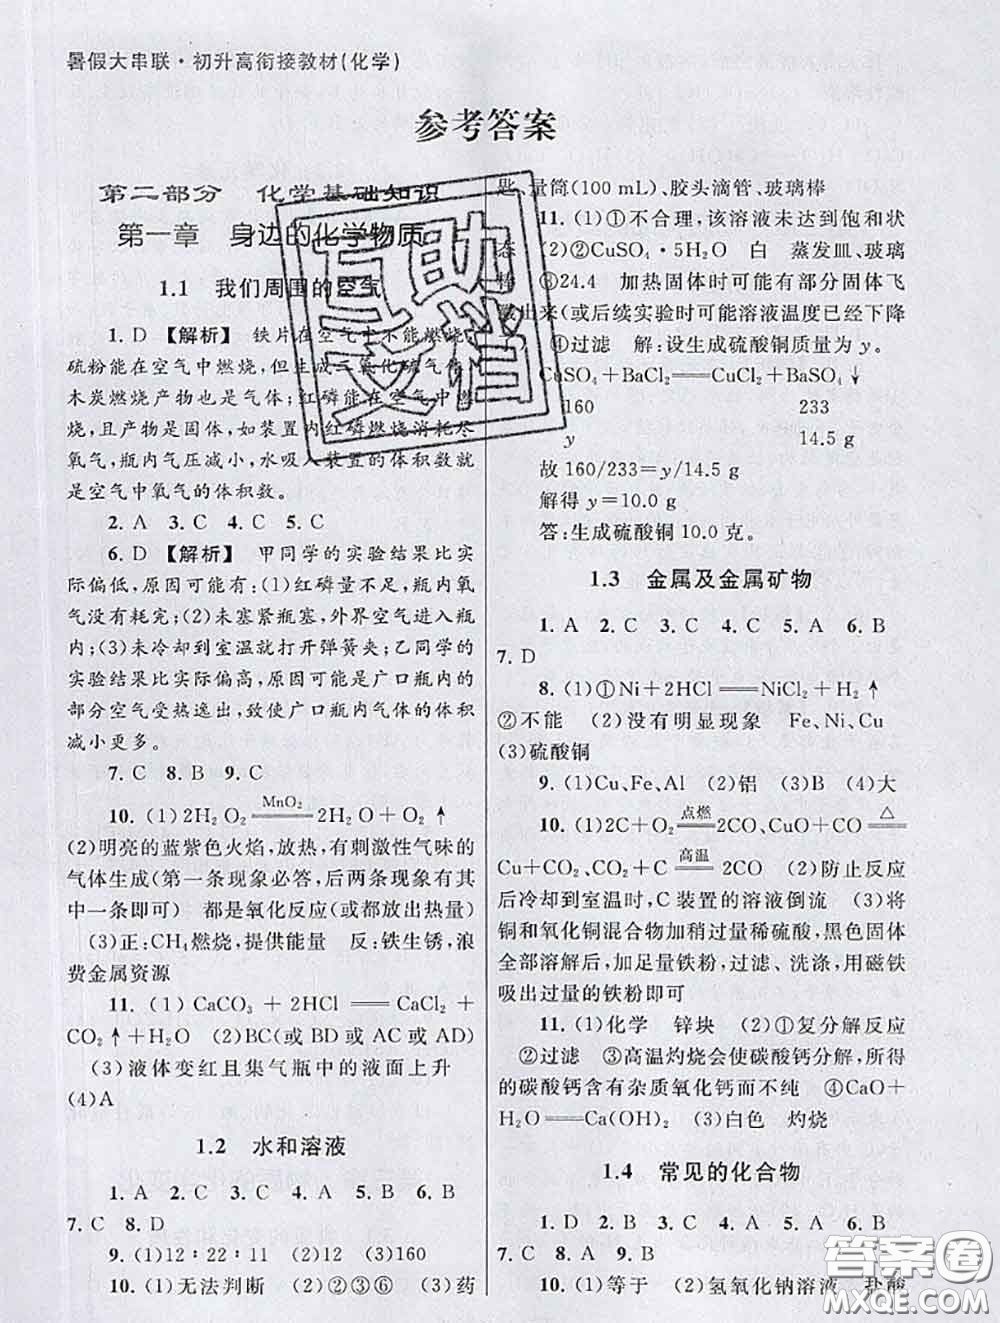 暑假大串联·初升高衔接教材(化学)
参考答案
第二部分　化学基础知识
第一章　身边的化学物质
1.1　我们周围的空气
1. D 【解析】 铁片在空气中不能燃烧;
硫粉能在空气中燃烧,但生成二氧化硫气体;
木炭燃烧产物也是气体;红磷能在空气中燃
烧,且产物是固体,如装置内红磷燃烧消耗尽
氧气,瓶内气压减小,水吸入装置的体积数就
是空气中氧气的体积数。
2. A　3. C　4. C　5. C
6. D 【解析】 甲同学的实验结果比实
际偏低,原因可能有:(1)红磷量不足,瓶内氧
气没有耗完;(2)未塞紧瓶塞,外界空气进入瓶
内;(3)未冷却到室温就打开弹簧夹;乙同学的
实验结果比实际偏高,原因可能是广口瓶内的
部分空气受热逸出,致使广口瓶内气体的体积
减小更多。
7. C　8. B　9. C
10. (1)2H₂O₂ ══MnO₂══ 2H₂O+O₂↑
(2)明亮的蓝紫色火焰,放热,有刺激性气味的
气体生成(第一条现象必答,后两条现象有其
中一条即可)　都是氧化反应(或都放出热量)
(3)正:CH₄燃烧,提供能量　反:铁生锈,浪
费金属资源
11. (1) CaCO₃ + 2HCl ══ CaCl₂ +
CO₂↑+H₂O　(2)BC(或 BD 或 AC 或 AD)
(3)液体变红且集气瓶中的液面上升
(4)A
1.2　水和溶液
1. A　2. C　3. C　4. A　5. B　6. B
7. C　8. D
9. (1)12∶22∶11　(2)12　(3)160
10. (1)无法判断　(2)②③⑥　(3)药
匙、量筒(100 mL)、胶头滴管、玻璃棒
11. (1)①不合理,该溶液未达到饱和状
态　(2)②CuSO₄·5H₂O　白　蒸发皿、玻璃
棒　③24.4　加热固体时可能有部分固体飞
出来(或后续实验时可能溶液温度已经下降
④过滤　解:设生成硫酸铜质量为 y。
CuSO₄+BaCl₂══CuCl₂+BaSO₄↓
160　233
y　14.5 g
故 160/233=y/14.5 g
解得 y=10.0 g
答:生成硫酸铜 10.0 克。
1.3　金属及金属矿物
1. A　2. C　3. C　4. C　5. A　6. B
7. D
8. (1)①Ni+2HCl══NiCl₂+H₂↑
②不能　(2)没有明显现象　Fe、Ni、Cu
(3)硫酸铜
9. (1)Cu、Fe、Al　(2)铝　(3)B　(4)大
10. (1)2C+O₂══点燃══2CO、CuO+CO══△══
Cu+CO₂、CO₂+C══高温══2CO　(2)防止反应
后冷却到室温时,C 装置的溶液倒流　(3)将
铜和氧化铜混合物加稍过量稀硫酸,黑色固体
全部溶解后,加足量铁粉,过滤、洗涤,用磁铁
吸出过量的铁粉即可
11. (1)化学　锌块　(2)①复分解反应
②过滤　③高温灼烧会使碳酸钙分解,所得
的碳酸钙含有杂质氧化钙而不纯　④CaO+
H₂O══Ca(OH)₂　(3)白色　灼烧
1.4　常见的化合物
1. D　2. B　3. C　4. A　5. A　6. B
7. C　8. A　9. B
10. (1)等于　(2)氢氧化钠溶液　盐酸
答案圈
MXQE.COM